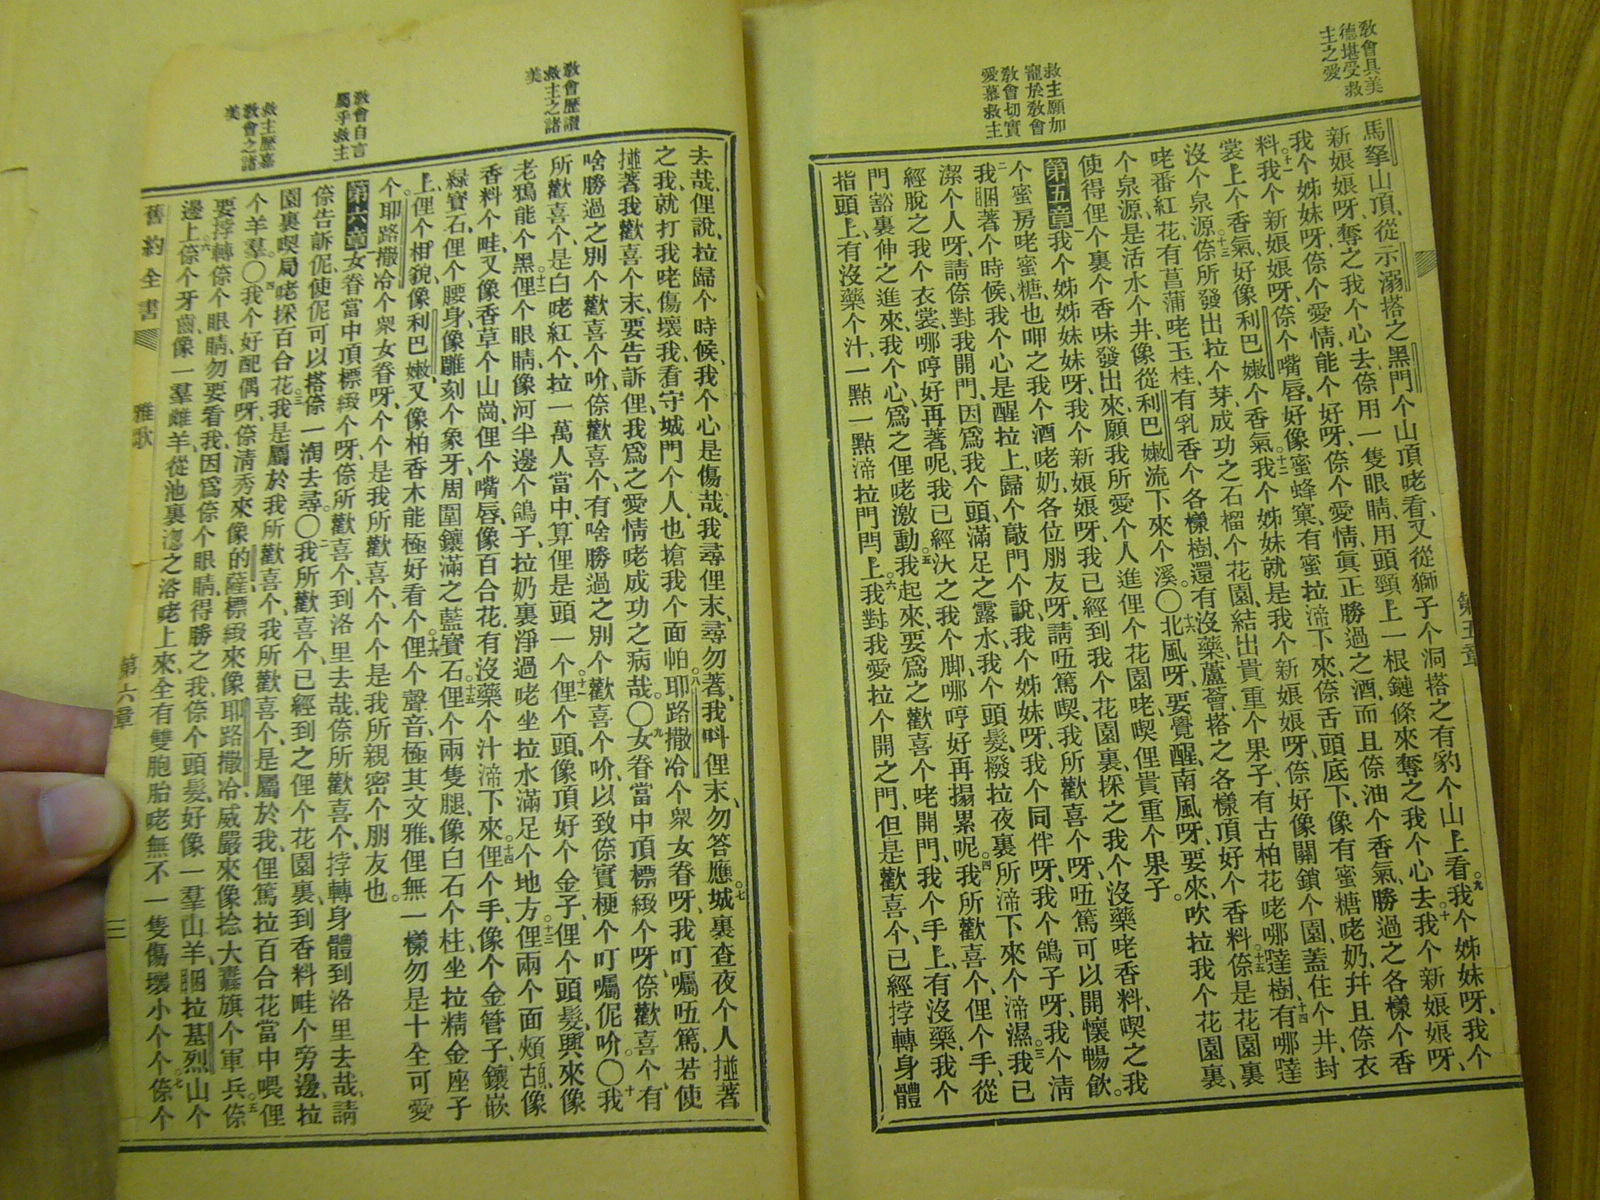 教會具美
德堪受救
主之愛
救主願加
寵於教會
教會切實
愛慕救主
第五章
馬拏山頂、從示溺搭之黑門个山頂咾看、又從獅子个洞搭之有豹个山上看。九我个姊妹呀、我个
新娘娘呀、奪之我个心去、倷用一隻眼睛、用頭頸上一根鏈條來奪之我个心去。十我个新娘娘呀、
我个姊妹呀、倷个愛情能个好呀、倷个愛情眞正勝過之酒、而且倷油个香氣勝過之各樣个香
料。十一我个新娘娘呀、倷个嘴唇、好像蜜蜂窠、有蜜拉渧下來、倷舌頭底下、像有蜜糖咾奶、幷且倷衣
裳上个香氣、好像利巴嫩个香氣。十二我个姊妹就是我个新娘娘呀、倷好像關鎖个園、蓋住个井、封
沒个泉源。十三倷所發出拉个芽、成功之石榴个花園、結出貴重个果子、有古柏花咾哪噠樹、十四有哪噠
咾番紅花、有菖蒲咾玉桂、有乳香个各樣樹、還有沒藥蘆薈搭之各樣頂好个香料。十五倷是花園裏
个泉源、是活水个井、像從利巴嫩流下來个溪。〇十六北風呀、要覺醒、南風呀、要來、吹拉我个花園裏、
使得俚个裏个香味發出來、願我所愛个人進俚个花園咾、喫俚貴重个果子。
第五章 一我个姊妹妹呀、我个新娘娘呀、我已經到我个花園裏、採之我个沒藥咾香料、喫之我
个蜜房咾蜜糖、也呷之我个酒咾奶、各位朋友呀、請㕶篤喫、我所歡喜个呀、㕶篤可以開懷暢飲。
二我睏著个時候、我个心是醒拉、上歸个敲門个說、我个姊妹呀、我个同伴呀、我个鴿子呀、我个淸
潔个人呀、請倷對我開門、因爲我个頭滿足之露水、我个頭髮、撥拉夜裏所渧下來个渧濕。三我已
經脫之我个衣裳、哪哼好再著呢、我已經汏之我个脚、哪哼好再搨累呢。四我所歡喜个、俚个手、從
門豁裏伸之進來、我个心、爲之俚咾激動。五我起來、要爲之歡喜个咾開門、我个手上、有沒藥、我个
指頭上、有沒藥个汁、一點一點渧拉門閂上。六我對我愛拉个開之門、但是歡喜个、已經挬轉身體
教會歷讚
救主之諸
美
教會自言
屬乎救主
救主歷嘉
教會之諸
美
去哉、俚說拉歸个時候、我个心是傷哉、我尋俚末、尋勿著、我呌俚末、勿答應。七城裏查夜个人、㨃著
之我、就打我咾傷壞我、看守城門个人、也搶我个面帕。八耶路撒冷个衆女眷呀、我叮囑㕶篤、若使
㨃著我歡喜个末、要告訴俚、我爲之愛情咾成功之病哉。〇九女眷當中頂標緻个呀、倷歡喜个、有
啥勝過之別个歡喜个吤、倷歡喜个有啥勝過之別个歡喜个吤、以致倷實梗个叮囑伲吤。〇十我
所歡喜个、是白咾紅个、拉一萬人當中、算俚是頭一个。十一俚个頭、像頂好个金子、俚个頭髮、興來像
老鴉能个黑。十二俚个眼睛、像河半邊个鴿子、拉奶裏淨過咾坐拉水滿足个地方。十三俚兩个面頰、像
香料个畦、又像香草个山崗、俚个嘴唇、像百合花有沒藥个汁渧下來。十四俚个手、像个金管子、鑲嵌
綠寶石、俚个腰身、像雕刻个象牙、周圍鑲滿之藍寶石。十五俚个兩隻腿、像白石个柱、坐拉精金座子
上、俚个相貌、像利巴嫩、又像柏香木能極好看个。十六俚个聲音、極其文雅、俚無一樣勿是十全可愛
个、耶路撒冷个衆女眷呀、个个是我所歡喜个、个个是我所親密个朋友也。
第六章 一女眷當中頂標緻个呀、倷所歡喜个、到洛里去哉、倷所歡喜个、挬轉身體到洛里去哉、請
倷告訴伲、使伲可以搭倷一淘去尋。〇二我所歡喜个、已經到之俚个花園裏、到香料畦个旁邊、拉
園裏喫局咾採百合花。三我是屬於我所歡喜个、我所歡喜个、是屬於我、俚篤拉百合花當中喂俚
个羊羣。〇四我个好配偶呀、倷淸秀來像的薩、標緻來像耶路撒冷、威嚴來像捻大纛旗个軍兵。五倷
要挬轉倷个眼睛、勿要看我、因爲倷个眼睛、得勝之我、倷个頭髮、好像一羣山羊、睏拉基烈山个
邊上。六倷个牙齒、像一羣雌羊、從池裏㴽之浴咾上來、全有雙胞胎咾無不一隻傷壞小个个。七倷个
舊約全書
雅歌
第六章
三